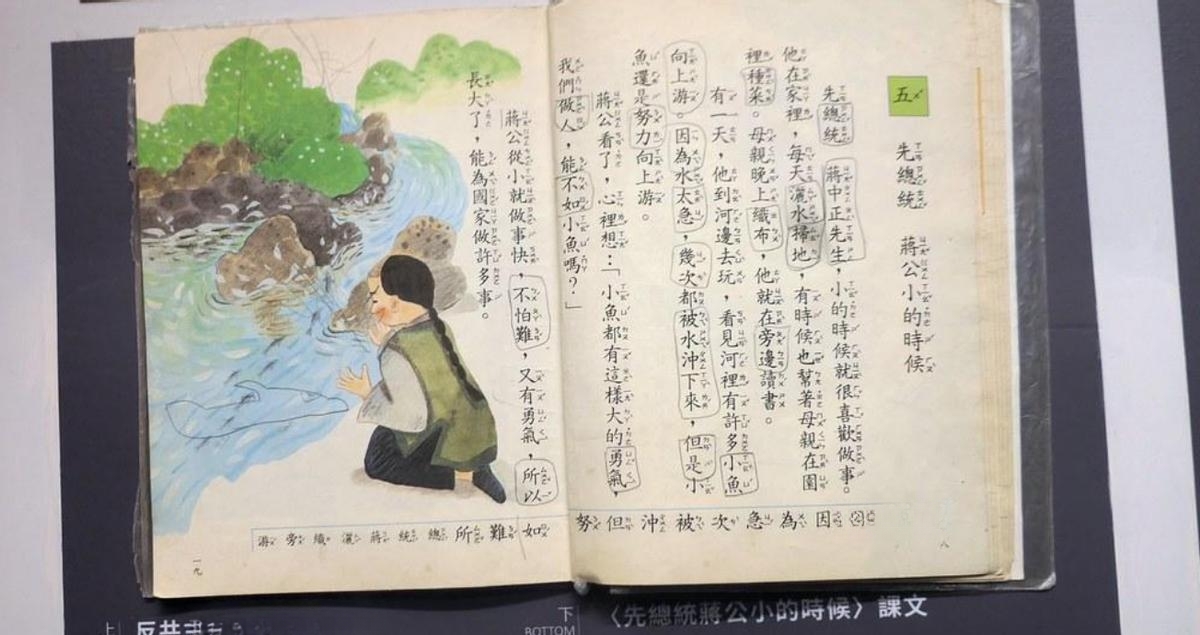 五
先總統 蔣公小的時候
先總統 蔣中正先生，小的時候就很喜歡做事。
他在家裡，每天灑水掃地，有時候也幫著母親在園
裡種菜。母親晚上織布，他就在旁邊讀書。
有一天，他到河邊去玩，看見河裡有許多小魚
向上游。因為水太急，幾次都被水沖下來，但是小
魚還是努力向上游。
蔣公看了，心裡想：「小魚都有這樣大的勇氣，
我們做人，能不如小魚嗎？」
蔣公從小就做事快，不怕難，又有勇氣，所以
長大了，能為國家做許多事。
因為急次被沖但努
如難所總統蔣灑織旁游
八
一九
下
BOTTOM
〈先總統蔣公小的時候〉課文